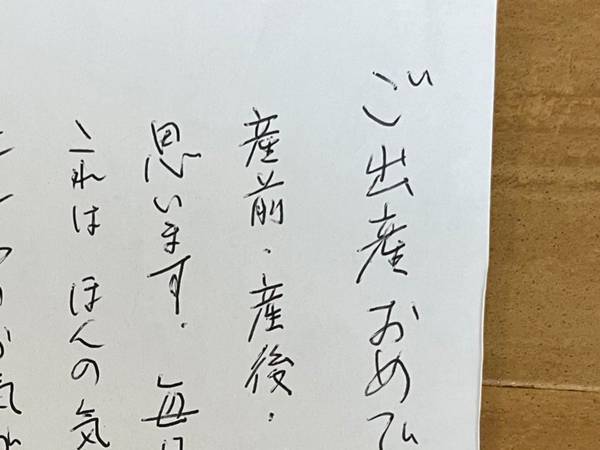 ご出産おめで
産前・産後・
思います。毎
これは ほんの気